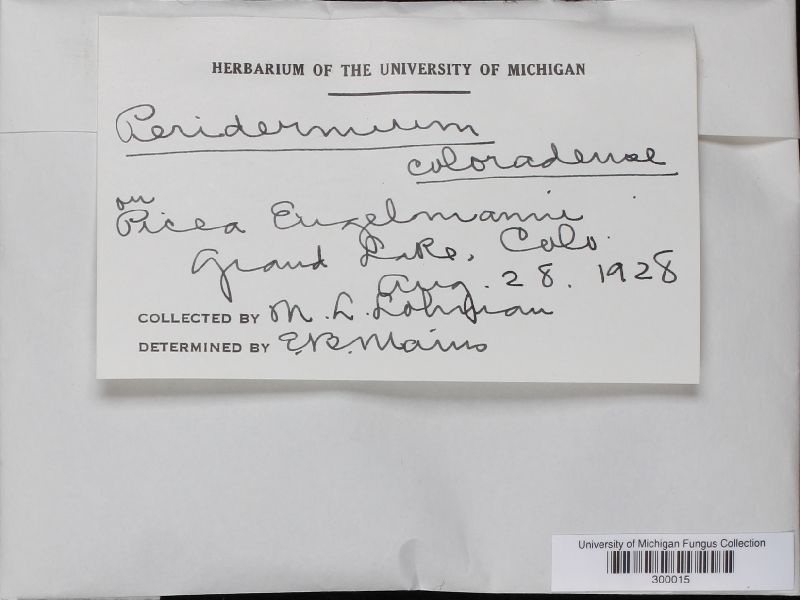 HERBARIUM OF THE UNIVERSITY OF MICHIGAN
Peridermium
coloradense
on
Picea Engelmanni
Grand Lake, Colo.
Aug. 28. 1928
COLLECTED BY M. L. Lohman
DETERMINED BY E.B. Mains
University of Michigan Fungus Collection
300015